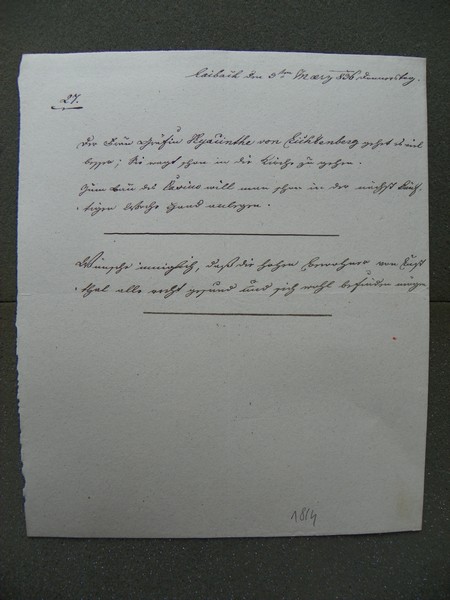 Laibach den 3ten März 836 Donnerstag.
27.
Der Frau Gräfin Hyacinthe von Lichtenberg gehet es viel
besser; Sie wagt schon in die Kirche zu gehen.
Zum Bau des Casino will man schon in der nächst künf-
tigen Woche Hand anlegen.
Wünsche inniglich, daß die hohen Bewohner von Lust
thal alle recht gesund und sich wohl befinden mögen
18/4